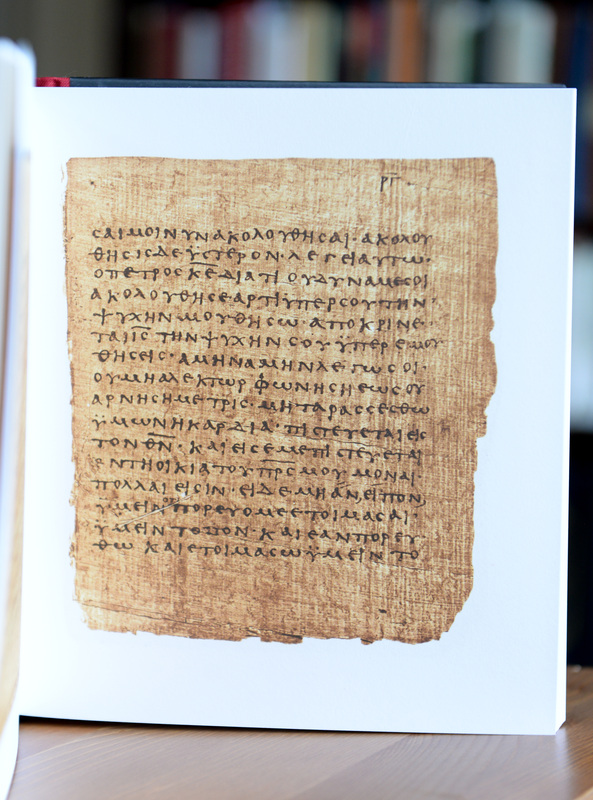 ΡΓ
ϲαιμοινυνακολουθηϲαι· ακολου
θηϲιϲδεϋϲτερον· λεγειαυτω·
οπετροϲκεδιατιουδυναμεϲοι
ακολουθηϲεαρτιϋπερϲουτην·
ψυχηνμουθηϲω· αποκρινε·
ταιιϲ̅ τηνψυχηνϲουϋπερεμου
θηϲειϲ· αμηναμηνλεγωϲοι·
ουμηαλεκτωρφωνηϲηεωϲου
αρνηϲημετριϲ· μηταραϲϲεϲθω
ϋμωνηκαρδια· πιϲτευεταιειϲ
τονθ̅ν̅· καιειϲεμεπιϲτευεται
εντηοικιατουπρ̅ϲ̅μου μοναι·
πολλαιειϲιν· ειδεμηανειπον
ϋμειν οτι πορευομεετοιμαϲαι·
ϋμειντοπον· καιεανπορευ·
θω καιετοιμαϲωϋμειν το